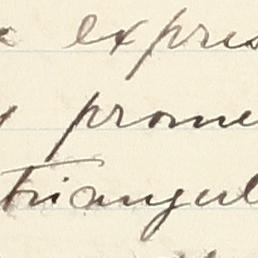 expres
prome
triangul